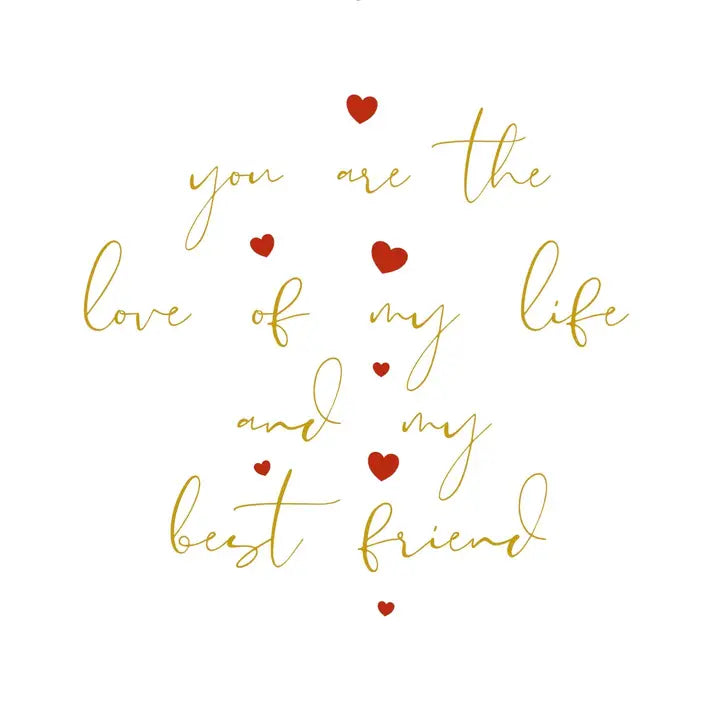 you are the
love of my life
and my
best friend